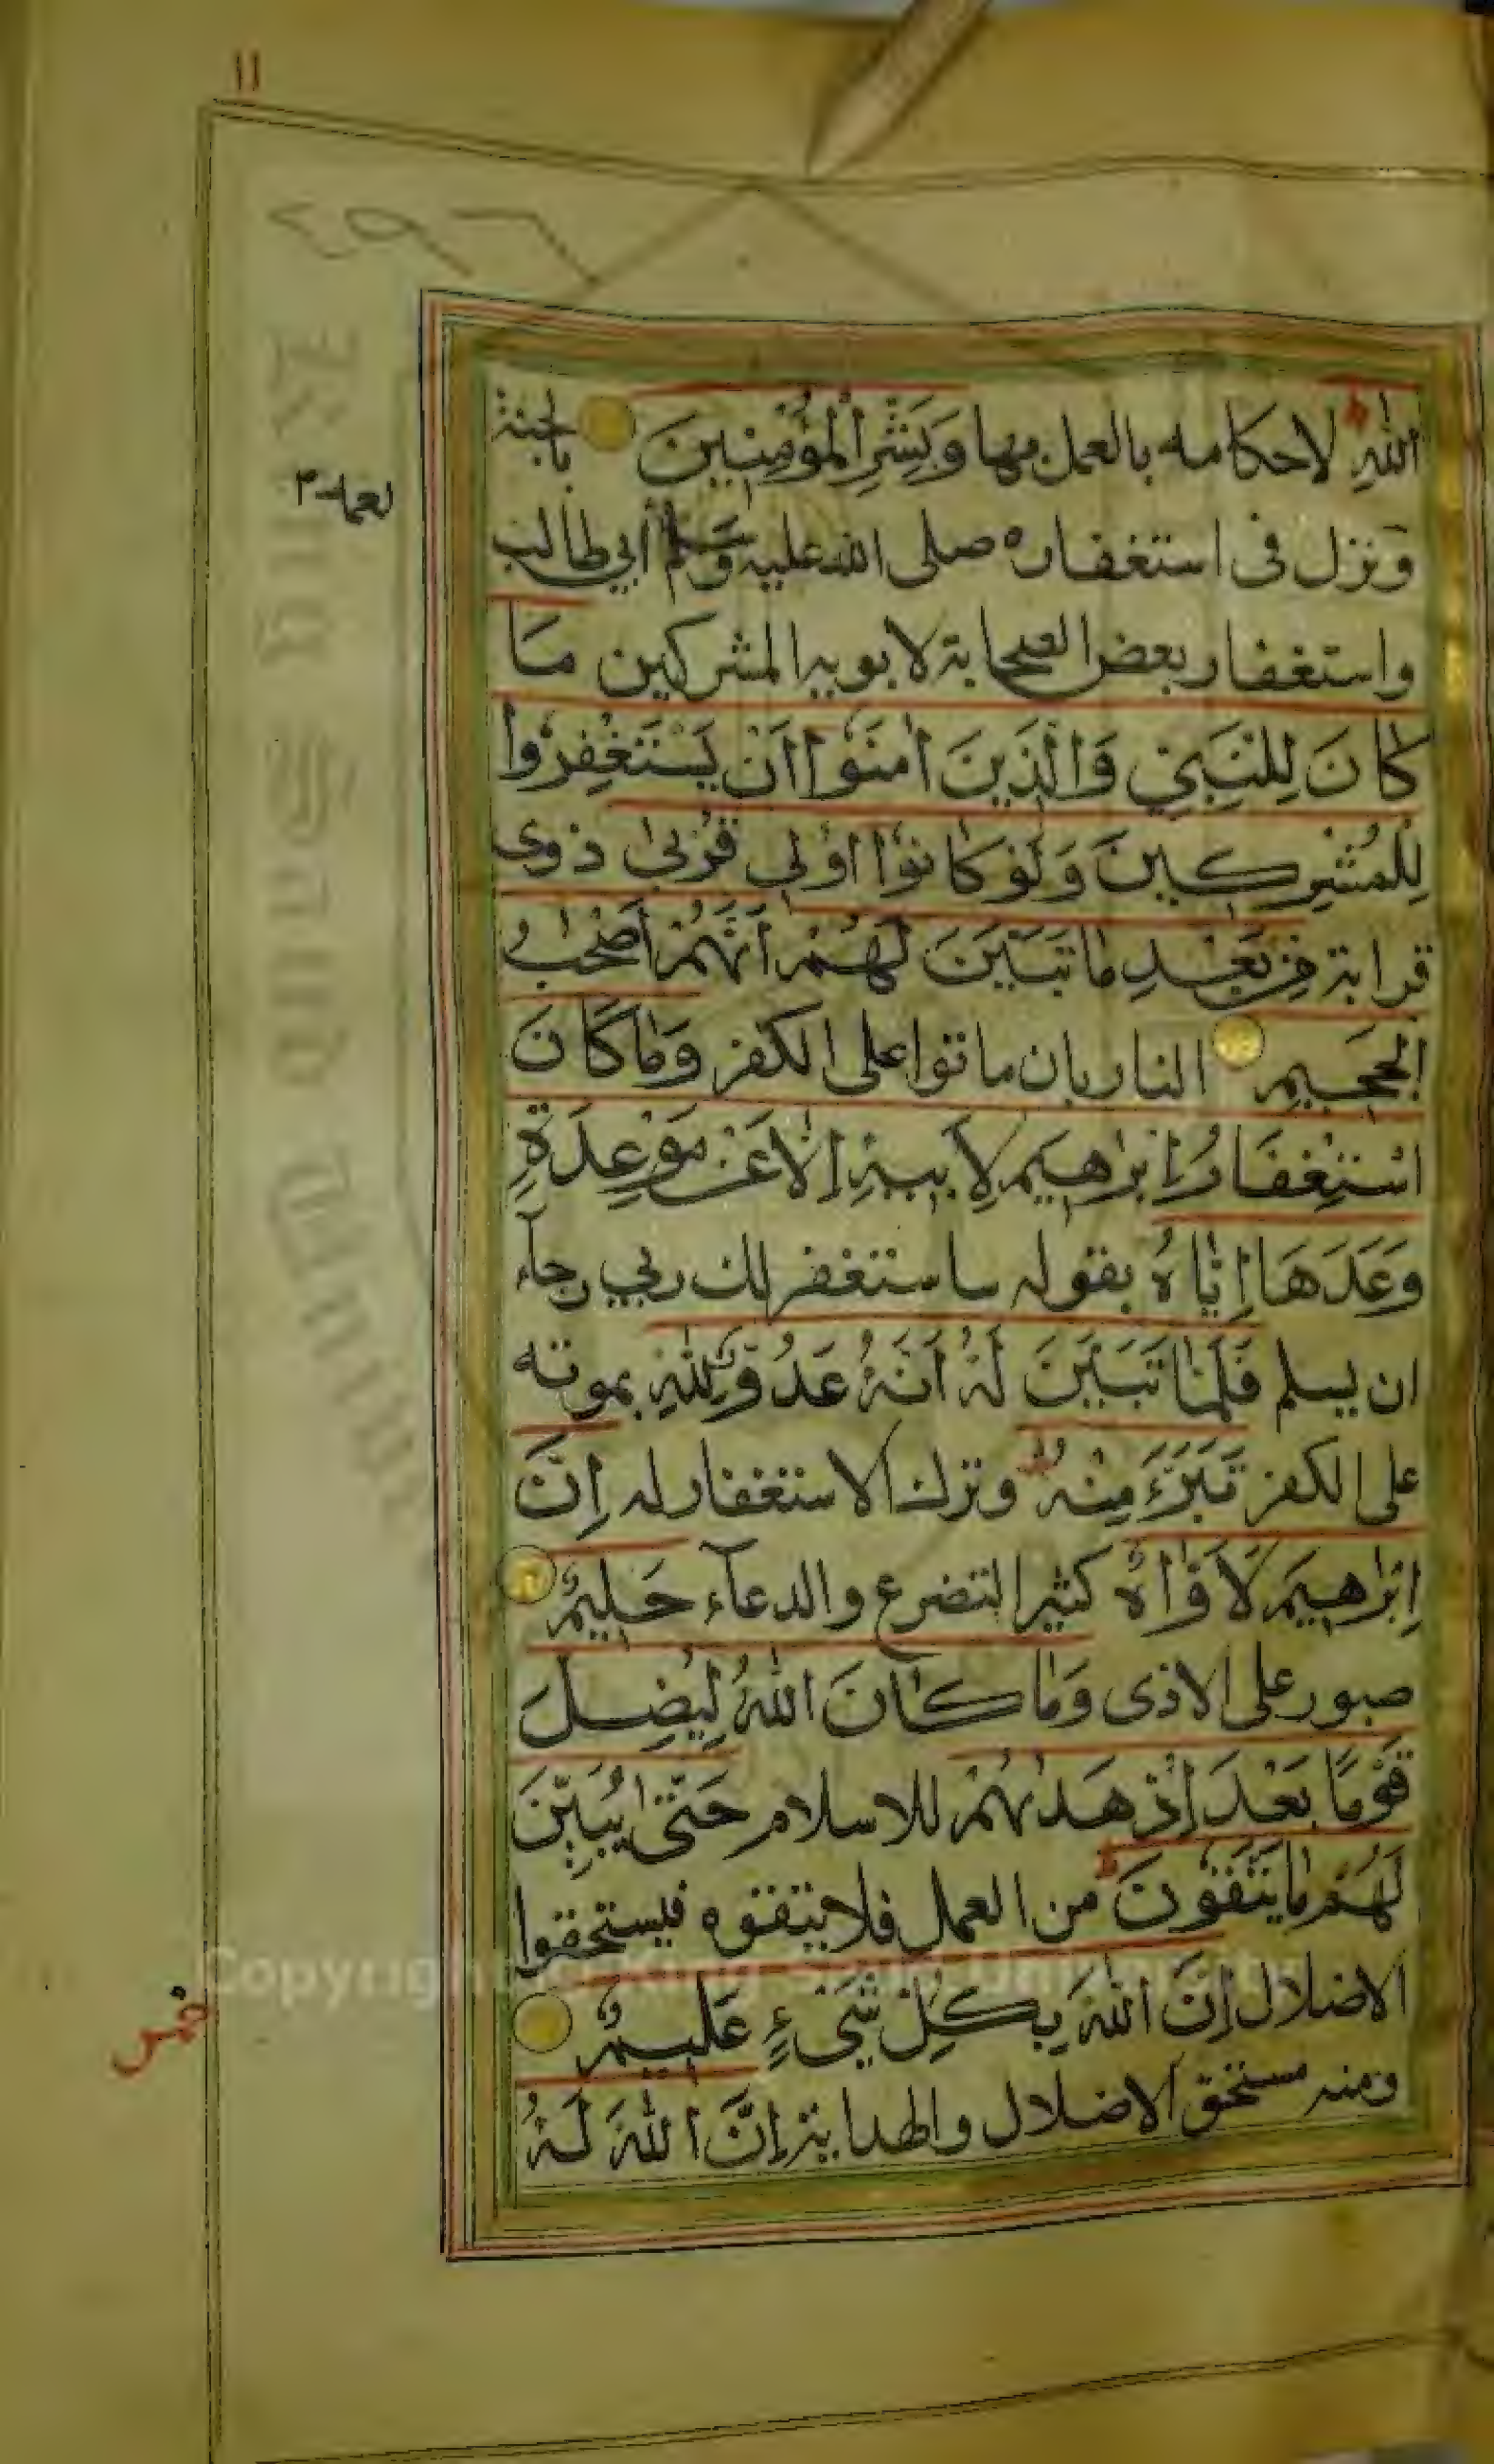 ١١
اللهِ لاحكامه بالعمل بها وَبَشِّرِ الْمُؤْمِنِينَ بالجنة
ونزل فى استغفاره صلى الله عليه وسلم أبي طالب
لعمه
واستغفار بعض الصحابة لابويه المشركين مَا
كَانَ لِلنَّبِيِّ وَالَّذِينَ اٰمَنُوا اَنْ يَسْتَغْفِرُوا
لِلْمُشْرِكِينَ وَلَوْ كَانُوا اُولِي قُرْبٰى ذوى
قرابة مِنْ بَعْدِ مَا تَبَيَّنَ لَهُمْ اَنَّهُمْ اَصْحٰبُ
الْجَحِيمِ النار بان ماتوا على الكفر وَمَا كَانَ
اسْتِغْفَارُ اِبْرٰهِيمَ لِاَبِيهِ اِلَّا عَنْ مَوْعِدَةٍ
وَعَدَهَا اِيَّاهُ بقوله ساستغفر لك ربي رجآء
ان يسلم فَلَمَّا تَبَيَّنَ لَهُ اَنَّهُ عَدُوٌّ لِلّٰهِ بموته
على الكفر تَبَرَّءَ مِنْهُ وترك الاستغفار له اِنَّ
اِبْرٰهِيمَ لَاَوَّاهٌ كثير التضرع والدعآء حَلِيمٌ
صبور على الاذى وَمَا كَانَ اللهُ لِيُضِلَّ
قَوْمًا بَعْدَ اِذْ هَدٰيهُمْ للاسلام حَتّٰى يُبَيِّنَ
لَهُمْ مَا يَتَّقُونَ من العمل فلا يتقوه فيستحقوا
الاضلال اِنَّ اللهَ بِكُلِّ شَيْءٍ عَلِيمٌ
خمس
ومنه مستحق الاضلال والهداية اِنَّ اللهَ لَهُ
King Saud University
Copyright © King Saud University